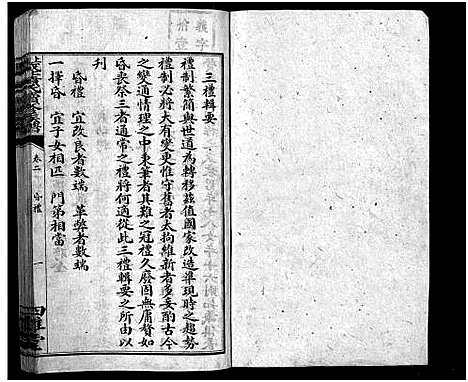 三禮輯要
禮制繁簡與世道為轉移茲值國家改造準現時之趨勢
禮制必將大有變更惟守舊者太拘維新者多妄酌古今
之變通情理之中秉筆者其難之冠禮久廢固無庸贅如
昏喪祭三者通常之禮將何適從此三禮輯要之所以由
刊
昏禮 宜改良者數端 革弊者數端
一擇昏 宜子女相匹 門弟相當
卷二
一